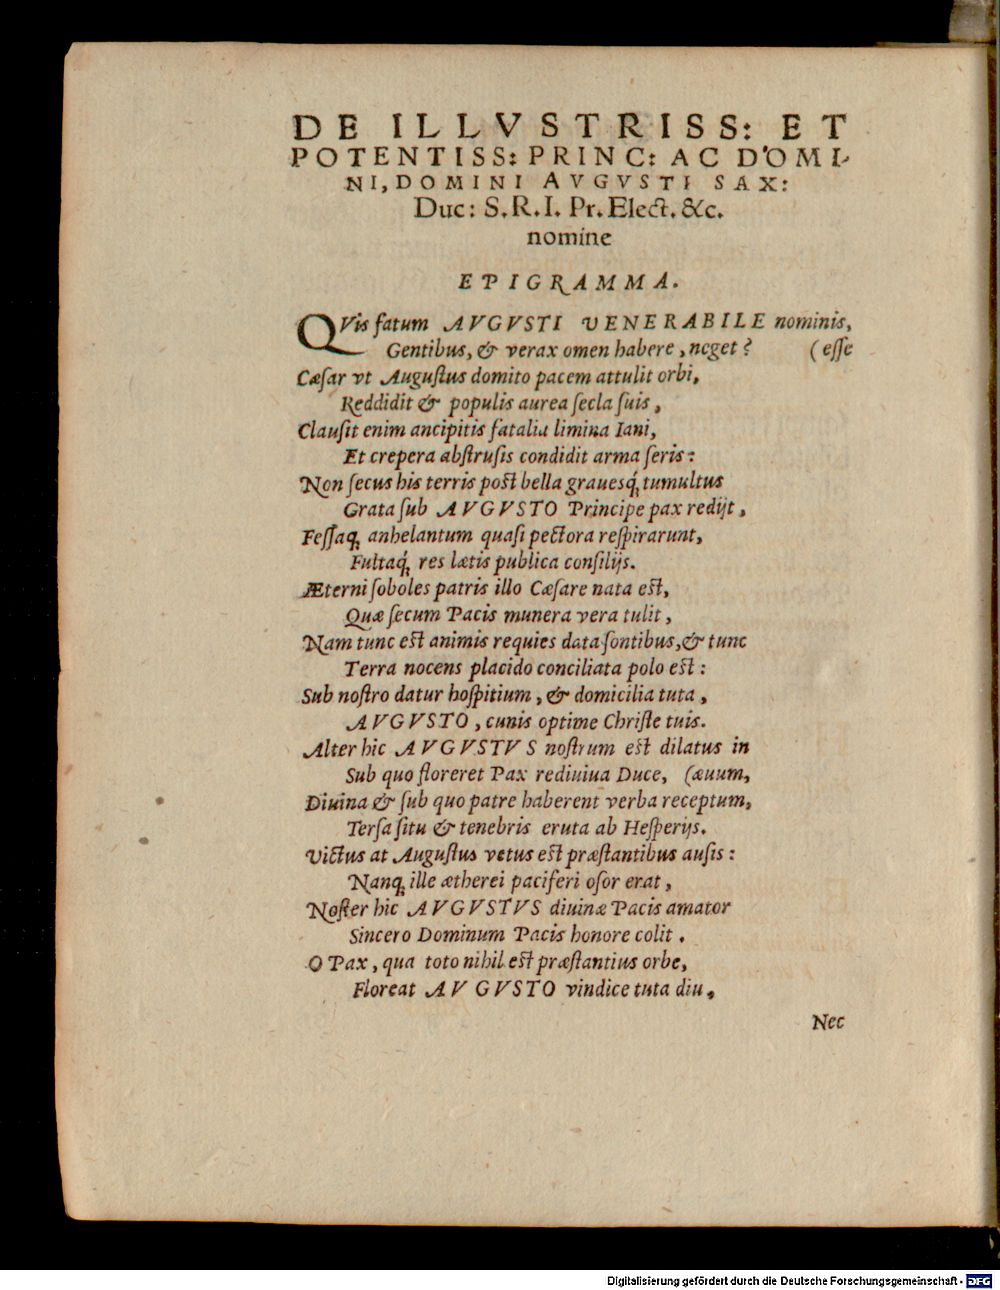 DE ILLVSTRISS: ET
POTENTISS: PRINC: AC DOMI-
NI, DOMINI AVGVSTI SAX:
Duc: S. R. I. Pr. Elect. &c.
nomine
EPIGRAMMA.
QVis fatum AVGVSTI VENERABILE nominis,
Gentibus, & verax omen habere, neget? (esse
Cæsar vt Augustus domito pacem attulit orbi,
Reddidit & populis aurea secla suis,
Clausit enim ancipitis fatalia limina Iani,
Et crepera abstrusis condidit arma seris:
Non secus his terris post bella grauesq́; tumultus
Grata sub AVGVSTO Principe pax redijt,
Fessaq; anhelantum quasi pectora respirarunt,
Fultaq́; res lætis publica consilijs.
Æterni soboles patris illo Cæsare nata est,
Quæ secum Pacis munera vera tulit,
Nam tunc est animis requies data sontibus, & tunc
Terra nocens placido conciliata polo est:
Sub nostro datur hospitium, & domicilia tuta,
AVGVSTO, cunis optime Christe tuis.
Alter hic AVGVSTVS nostrum est dilatus in
Sub quo floreret Pax rediuiua Duce, (æuum,
Diuina & sub quo patre haberent verba receptum,
Tersa situ & tenebris eruta ab Hesperijs.
Victus at Augustus vetus est præstantibus ausis:
Nanq; ille ætherei paciferi osor erat,
Noster hic AVGVSTVS diuinæ Pacis amator
Sincero Dominum Pacis honore colit.
O Pax, qua toto nihil est præstantius orbe,
Floreat AVGVSTO vindice tuta diu,
Nec
Digitalisierung gefördert durch die Deutsche Forschungsgemeinschaft - DFG